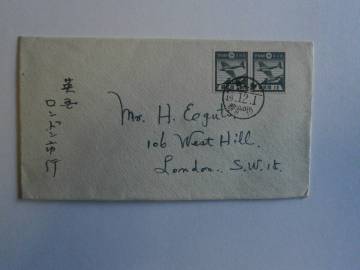 英国
ロンドン市行
Mr. H. Eagut
106 West Hill.
London. S.W.15.
12.1